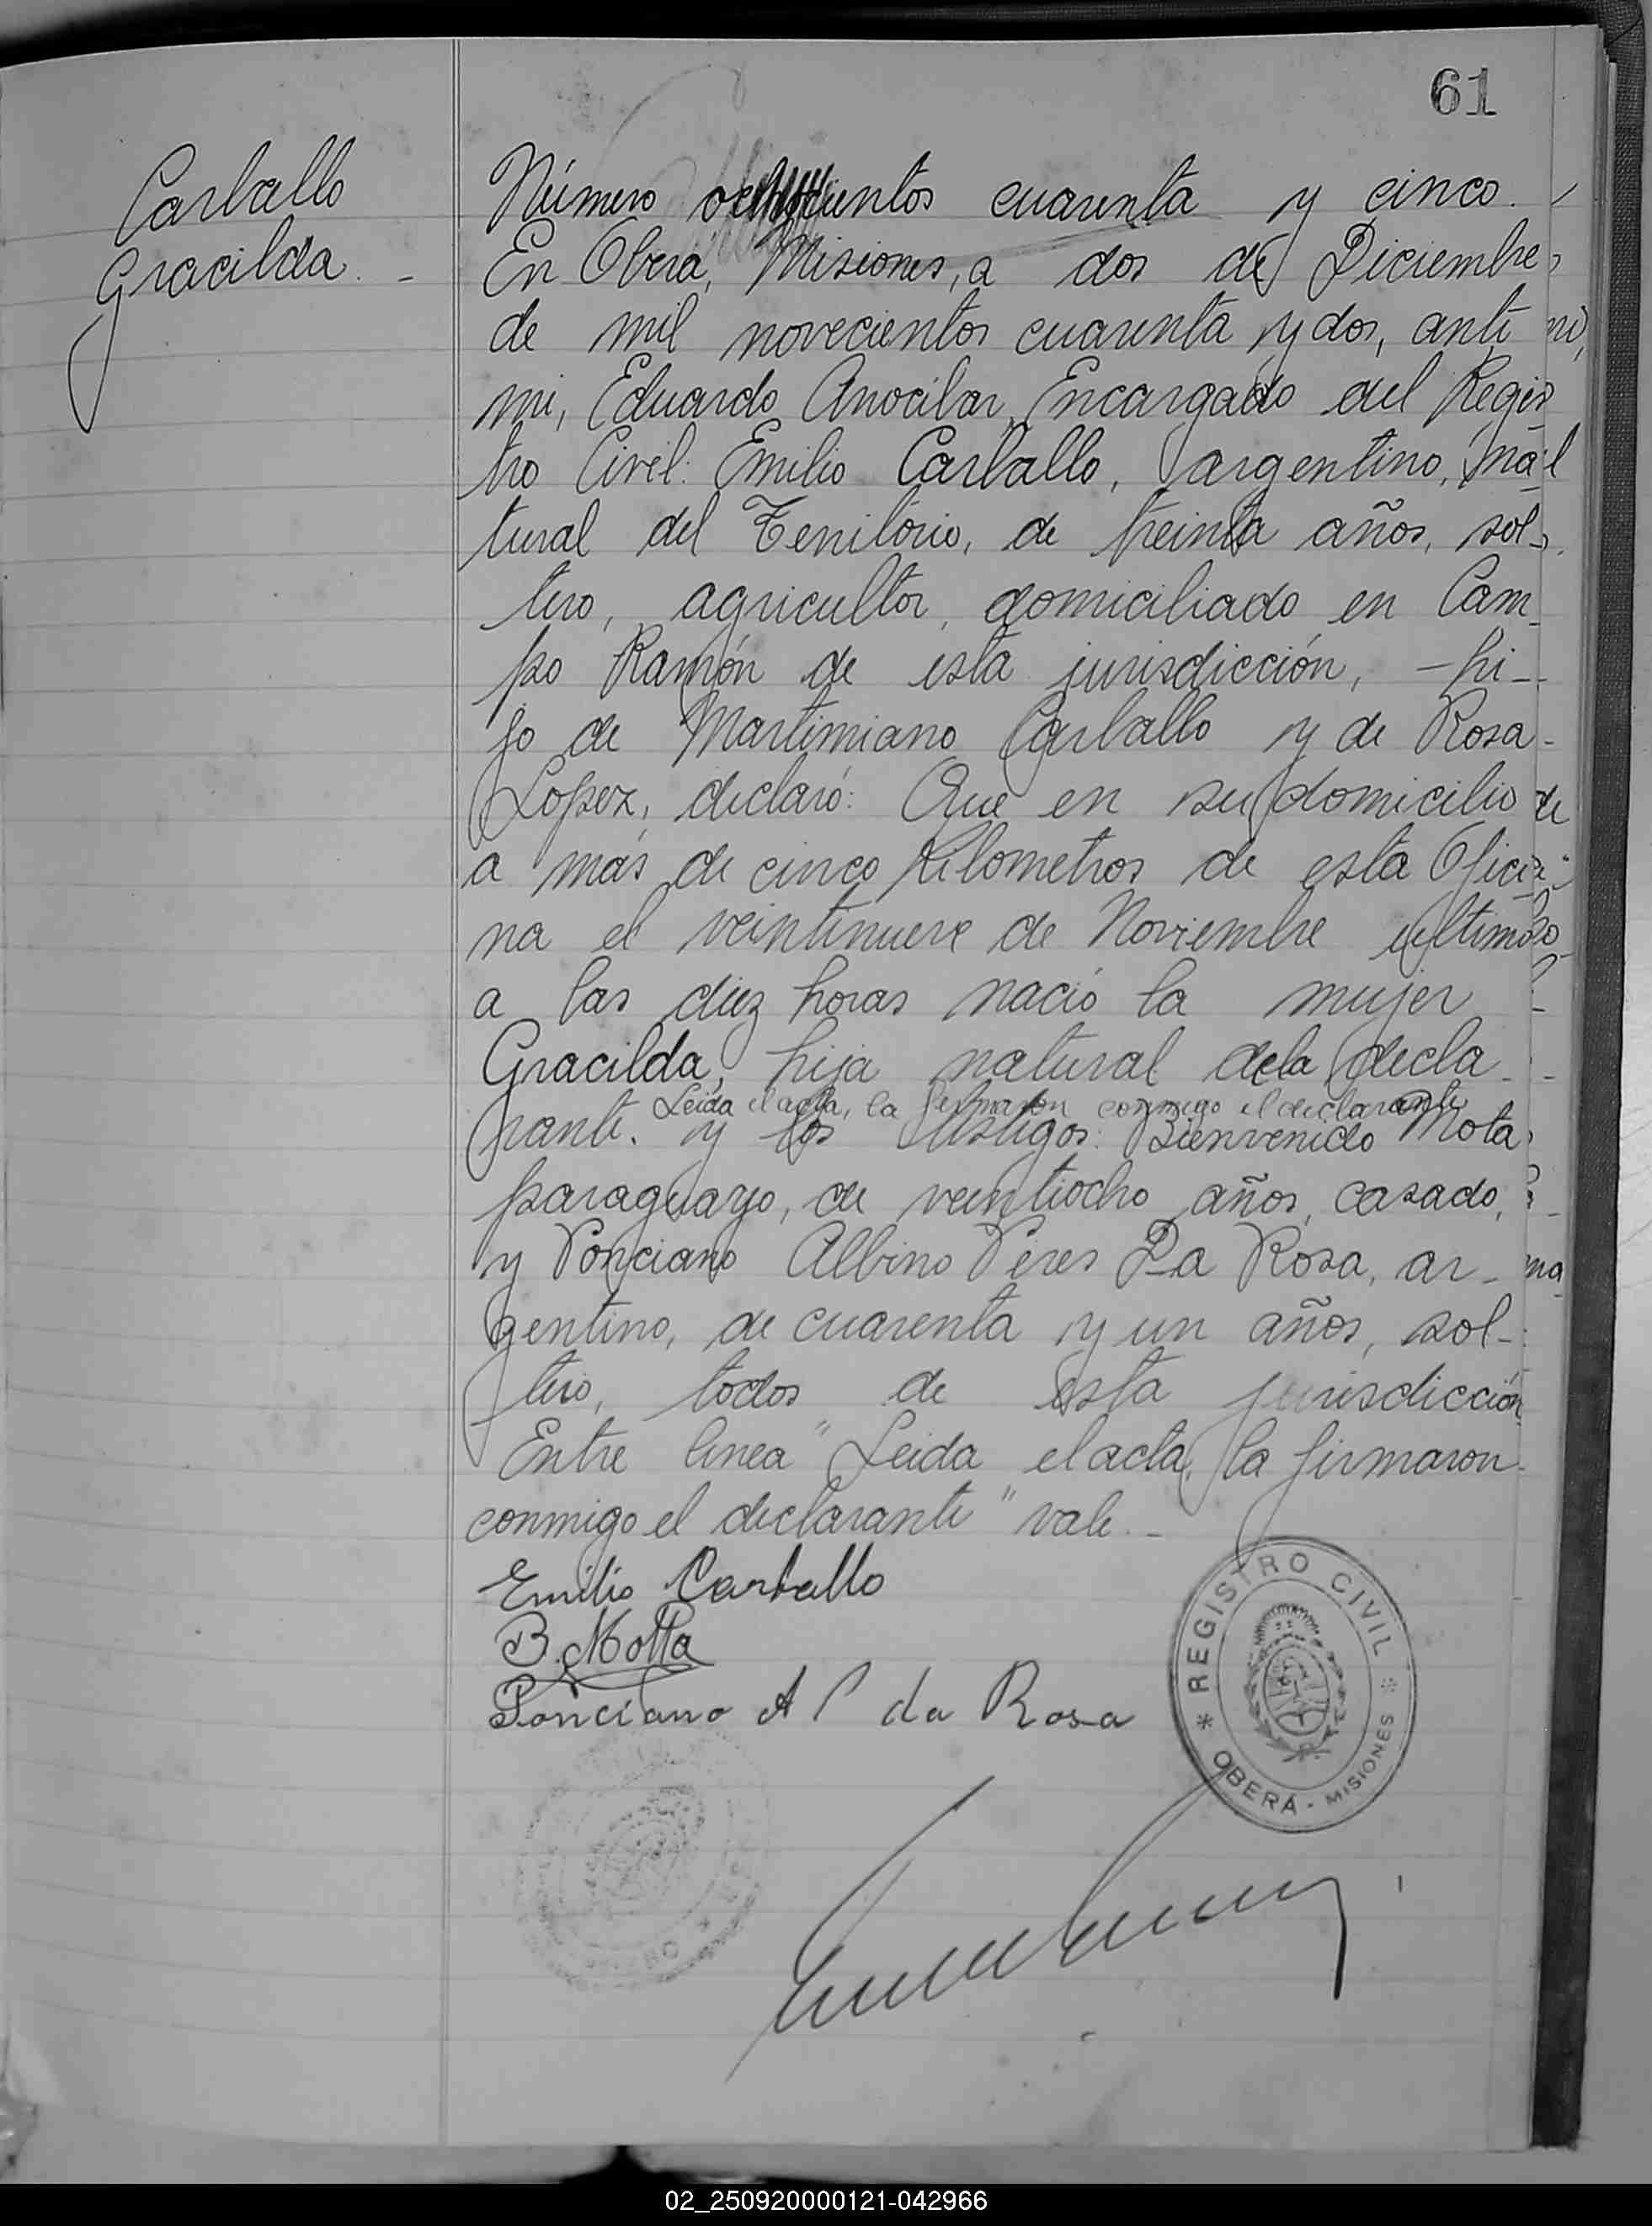 61
Carballo
Gracilda. -
Número ochocientos cuarenta y cinco.
En Obera, Misiones, a dos de Diciembre
de mil novecientos cuarenta y dos, ante
mi, Eduardo Encargado del Regis
tro Civil: Emilio Carballo, argentino, na
tural del Territorio, de treinta años, sol-
tero, agricultor, domiciliado en Cam
po Ramón de esta jurisdicción, - hi-
jo de Martimiano Carballo y de Rosa
Lopez, declaró: Que en su domicilio
a más de cinco kilometros de esta Ofici
na el veintinueve de Noviembre ultimo
a las diez horas nació la mujer
Gracilda, hija natural dela decla
Leida el acta, la firmaron conmigo el declarante
rante. y los testigos: Bienvenido Mota
paraguayo, de veintiocho años, casado,
y Ponciano Albino Peres Da Rosa, ar-
gentino, de cuarenta y un años, sol-
tero, todos de esta jurisdicción
Entre linea "Leida el acta, la firmaron
conmigo el declarante" vale.-
Emilio Carballo
B. Motta
Ponciano A P da Rosa
* REGISTRO CIVIL *
OBERÁ - MISIONES
02_250920000121-042966